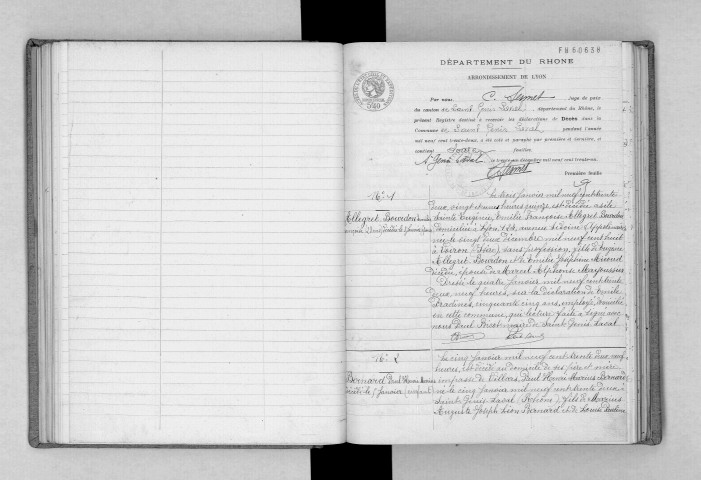 FB60638
DÉPARTEMENT DU RHONE
ARRONDISSEMENT DE LYON
Par nous, C. Juge de paix
du canton de Saint Genis Laval, département du Rhône, le
présent Registre destiné à recevoir les déclarations de Décès dans la
Commune de Saint Genis Laval, pendant l'année
mil neuf cent trente-deux, a été coté et paraphé par première et dernière, et
contient feuilles.
St Genis Laval le trente-un décembre mil neuf cent trente-un.
Première feuille
N° 1
Allegret Bourdon Emilie
Le trois Janvier mil neuf cent trente
deux, vingt et une heures quinze, est décédée asile
Sainte Eugénie, Emilie Françoise Allegret Bourdon
domiciliée à Lyon, avenue Sidoine Apollinaire
née le vingt deux décembre mil neuf cent huit
à Voiron (Isère), sans profession, fille de Eugène
Allegret Bourdon et de Emilie Joséphine
décédée, épouse de Marcel Alphonse
Dressé le quatre Janvier mil neuf cent trente
deux, neuf heures, sur la déclaration de Emile
Pradines, cinquante cinq ans, employé, domicilié
en cette commune, qui lecture faite a signé avec
nous maire de Saint Genis Laval
N° 2
Bernard Paul Henri Marius
décédé le 5 Janvier
Le cinq Janvier mil neuf cent trente deux, neuf
heures, est décédé au domicile de ses père et mère
impasse de Villars, Paul Henri Marius Bernard
né le cinq Janvier mil neuf cent trente deux à
Saint Genis Laval (Rhône), fils de Marius
Auguste Joseph Léon Bernard et de Louise